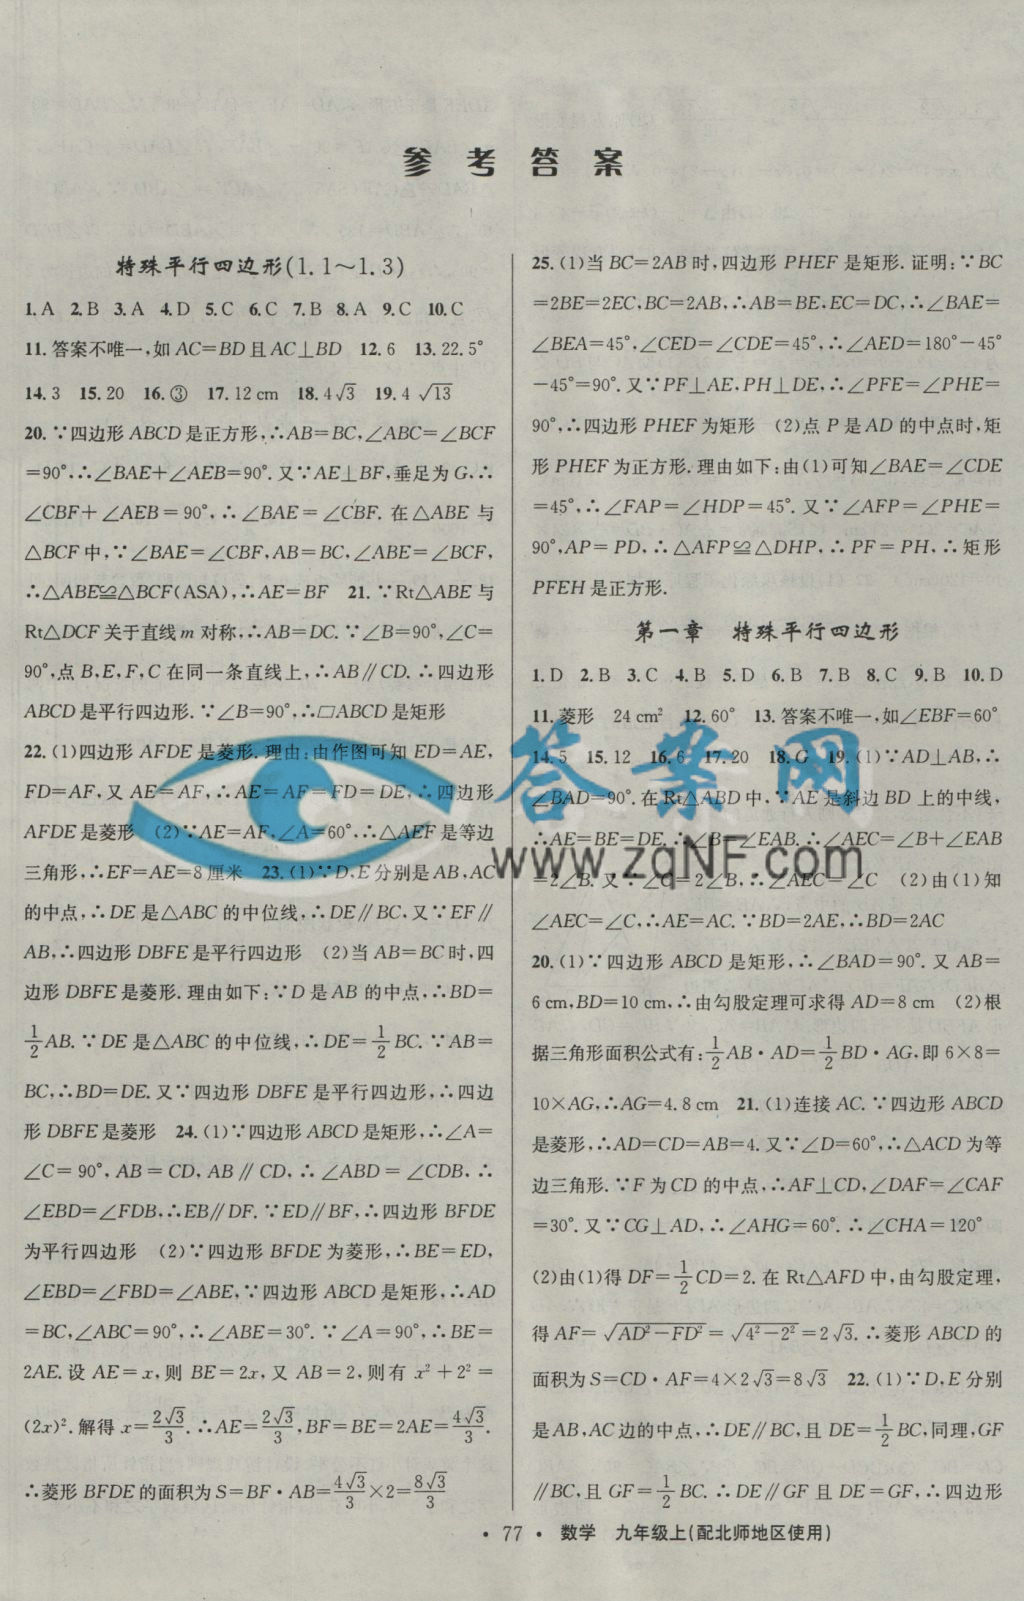 参考答案
特殊平行四边形(1.1～1.3)
1.A 2.B 3.A 4.D 5.C 6.C 7.B 8.A 9.C 10.C
11.答案不唯一,如 AC=BD 且 AC⊥BD 12.6 13.22.5°
14.3 15.20 16.③ 17.12 cm 18.4√3 19.4√13
20.∵四边形 ABCD 是正方形,∴AB=BC,∠ABC=∠BCF
=90°,∴∠BAE+∠AEB=90°.又∵AE⊥BF,垂足为 G,∴
∠CBF+∠AEB=90°,∴∠BAE=∠CBF.在△ABE 与
△BCF 中,∵∠BAE=∠CBF,AB=BC,∠ABE=∠BCF,
∴△ABE≌△BCF(ASA),∴AE=BF 21.∵Rt△ABE 与
Rt△DCF 关于直线 m 对称,∴AB=DC.∵∠B=90°,∠C=
90°,点 B,E,F,C 在同一条直线上,∴AB∥CD.∴四边形
ABCD 是平行四边形.∵∠B=90°,∴□ABCD 是矩形
22.(1)四边形 AFDE 是菱形.理由:由作图可知 ED=AE,
FD=AF,又 AE=AF,∴AE=AF=FD=DE,∴四边形
AFDE 是菱形 (2)∵AE=AF,∠A=60°,∴△AEF 是等边
三角形,∴EF=AE=8 厘米 23.(1)∵D,E 分别是 AB,AC
的中点,∴DE 是△ABC 的中位线,∴DE∥BC,又∵EF∥
AB,∴四边形 DBFE 是平行四边形 (2)当 AB=BC 时,四
边形 DBFE 是菱形.理由如下:∵D 是 AB 的中点,∴BD=
1/2 AB.∵DE 是△ABC 的中位线,∴DE=1/2 BC.∵AB=
BC,∴BD=DE.又∵四边形 DBFE 是平行四边形,∴四边
形 DBFE 是菱形 24.(1)∵四边形 ABCD 是矩形,∴∠A=
∠C=90°,AB=CD,AB∥CD,∴∠ABD=∠CDB,∴
∠EBD=∠FDB,∴EB∥DF.∵ED∥BF,∴四边形 BFDE
为平行四边形 (2)∵四边形 BFDE 为菱形,∴BE=ED,
∠EBD=∠FBD=∠ABE,∵四边形 ABCD 是矩形,∴AD
=BC,∠ABC=90°,∴∠ABE=30°.∵∠A=90°,∴BE=
2AE.设 AE=x,则 BE=2x,又 AB=2,则有 x²+2²=
(2x)².解得 x=2√3/3.∴AE=2√3/3,BF=BE=2AE=4√3/3.
∴菱形 BFDE 的面积为 S=BF·AB=4√3/3×2=8√3/3
25.(1)当 BC=2AB 时,四边形 PHEF 是矩形.证明:∵BC
=2BE=2EC,BC=2AB,∴AB=BE,EC=DC,∴∠BAE=
∠BEA=45°,∠CED=∠CDE=45°,∴∠AED=180°-45°
-45°=90°.又∵PF⊥AE,PH⊥DE,∴∠PFE=∠PHE=
90°,∴四边形 PHEF 为矩形 (2)点 P 是 AD 的中点时,矩
形 PHEF 为正方形.理由如下:由(1)可知∠BAE=∠CDE
=45°,∴∠FAP=∠HDP=45°.又∵∠AFP=∠PHE=
90°,AP=PD,∴△AFP≌△DHP,∴PF=PH,∴矩形
PFEH 是正方形.
第一章 特殊平行四边形
1.D 2.B 3.C 4.B 5.D 6.B 7.B 8.C 9.B 10.D
11.菱形 24 cm² 12.60° 13.答案不唯一,如∠EBF=60°
14.5 15.12 16.6 17.20 18.G 19.(1)∵AD⊥AB,∴
∠BAD=90°.在 Rt△ABD 中,∵AE 是斜边 BD 上的中线,
∴AE=BE=DE.∴∠B=∠EAB.∴∠AEC=∠B+∠EAB
=2∠B.又∵∠C=2∠B,∴∠AEC=∠C (2)由(1)知
∠AEC=∠C,∴AE=AC.∵BD=2AE,∴BD=2AC
20.(1)∵四边形 ABCD 是矩形,∴∠BAD=90°.又 AB=
6 cm,BD=10 cm,∴由勾股定理可求得 AD=8 cm (2)根
据三角形面积公式有:1/2 AB·AD=1/2 BD·AG,即 6×8=
10×AG,∴AG=4.8 cm 21.(1)连接 AC.∵四边形 ABCD
是菱形,∴AD=CD=AB=4.又∵∠D=60°,∴△ACD 为等
边三角形.∵F 为 CD 的中点,∴AF⊥CD,∠DAF=∠CAF
=30°.又∵CG⊥AD,∴∠AHG=60°.∴∠CHA=120°
(2)由(1)得 DF=1/2 CD=2.在 Rt△AFD 中,由勾股定理,
得 AF=√(AD²-FD²)=√(4²-2²)=2√3.∴菱形 ABCD 的
面积为 S=CD·AF=4×2√3=8√3 22.(1)∵D,E 分别
是 AB,AC 边的中点,∴DE∥BC,且 DE=1/2 BC,同理,GF
∥BC,且 GF=1/2 BC.∴DE∥GF 且 DE=GF,∴四边形
答案网
www.zqNF.com
·77· 数学 九年级上(配北师地区使用)